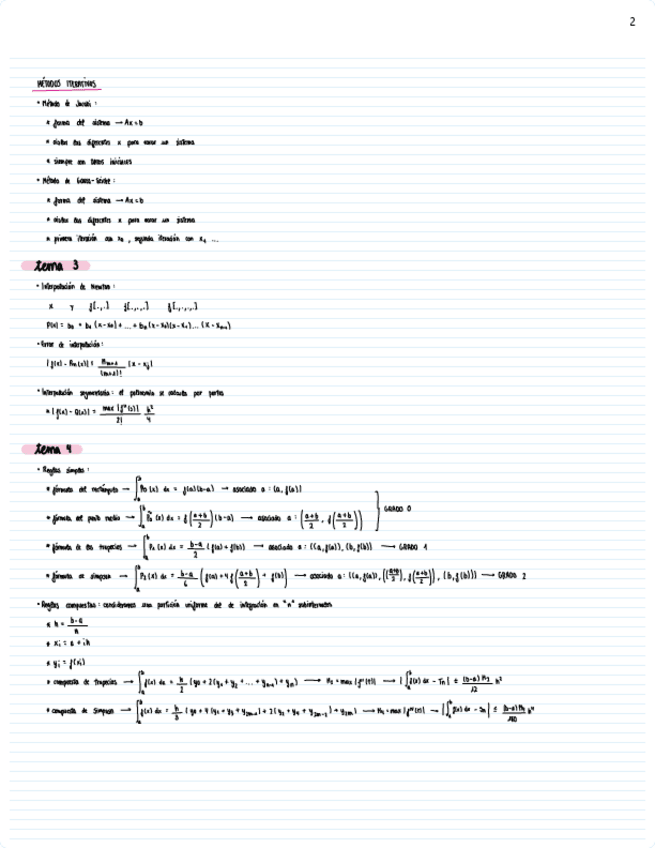 2
MÉTODOS ITERATIVOS
• Método de Jacobi:
* forma del sistema → Ax=b
* aislar las diferentes x para crear un sistema
* siempre con datos iniciales
• Método de Gauss-Seidel:
* forma del sistema → Ax=b
* aislar las diferentes x para crear un sistema
* primera iteración con x₀, segunda iteración con x₁ ...
tema 3
• Interpolación de Newton:
x y f[.,.] f[.,.,.] f[.,.,.,.]
P(x) = b₀ + b₁(x-x₀) + ... + bₙ(x-x₀)(x-x₁)...(x-xₙ₋₁)
• Error de interpolación:
|f(x) - Pₙ(x)| ≤ Mₙ₊₁/(n+1)! (x-xⱼ)
• Interpolación segmentaria: el polinomio se calcula por partes
* |f(x) - Q(x)| = max|f''(x)|/2! h²/4
tema 4
• Reglas simples:
* fórmula del rectángulo → ∫ₐᵇ P₀(x) dx = f(a)(b-a) → asociado a: (a, f(a))
* fórmula del punto medio → ∫ₐᵇ P₀(x) dx = f((a+b)/2)(b-a) → asociado a: ((a+b)/2, f((a+b)/2)) GRADO 0
* fórmula de los trapecios → ∫ₐᵇ P₁(x) dx = (b-a)/2 (f(a)+f(b)) → asociado a: ((a,f(a)), (b,f(b))) → GRADO 1
* fórmula de simpson → ∫ₐᵇ P₂(x) dx = (b-a)/6 (f(a)+4f((a+b)/2)+f(b)) → asociado a: ((a,f(a)), ((a+b)/2, f((a+b)/2)), (b,f(b))) → GRADO 2
• Reglas compuestas: consideramos una partición uniforme del de integración en "n" subintervalos
* h = (b-a)/n
* xᵢ = a + ih
* yᵢ = f(xᵢ)
* compuesta de trapecios → ∫ₐᵇ f(x) dx = h/2 (y₀+2(y₁+y₂+...+yₙ₋₁)+yₙ) → M₂=max|f''(x)| → |∫ₐᵇ f(x) dx - Tₙ| ≤ (b-a)M₂/12 h²
* compuesta de simpson → ∫ₐᵇ f(x) dx = h/3 (y₀+4(y₁+y₃+y₂ₘ₋₁)+2(y₂+y₄+y₂ₘ₋₂)+y₂ₘ) → M₄=max|f⁗(x)| → |∫ₐᵇ f(x) dx - Sₙ| ≤ (b-a)M₄/180 h⁴